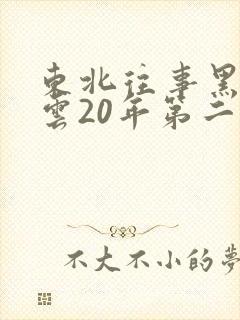 東北往事黑
雲20年第二
不大不小的夢